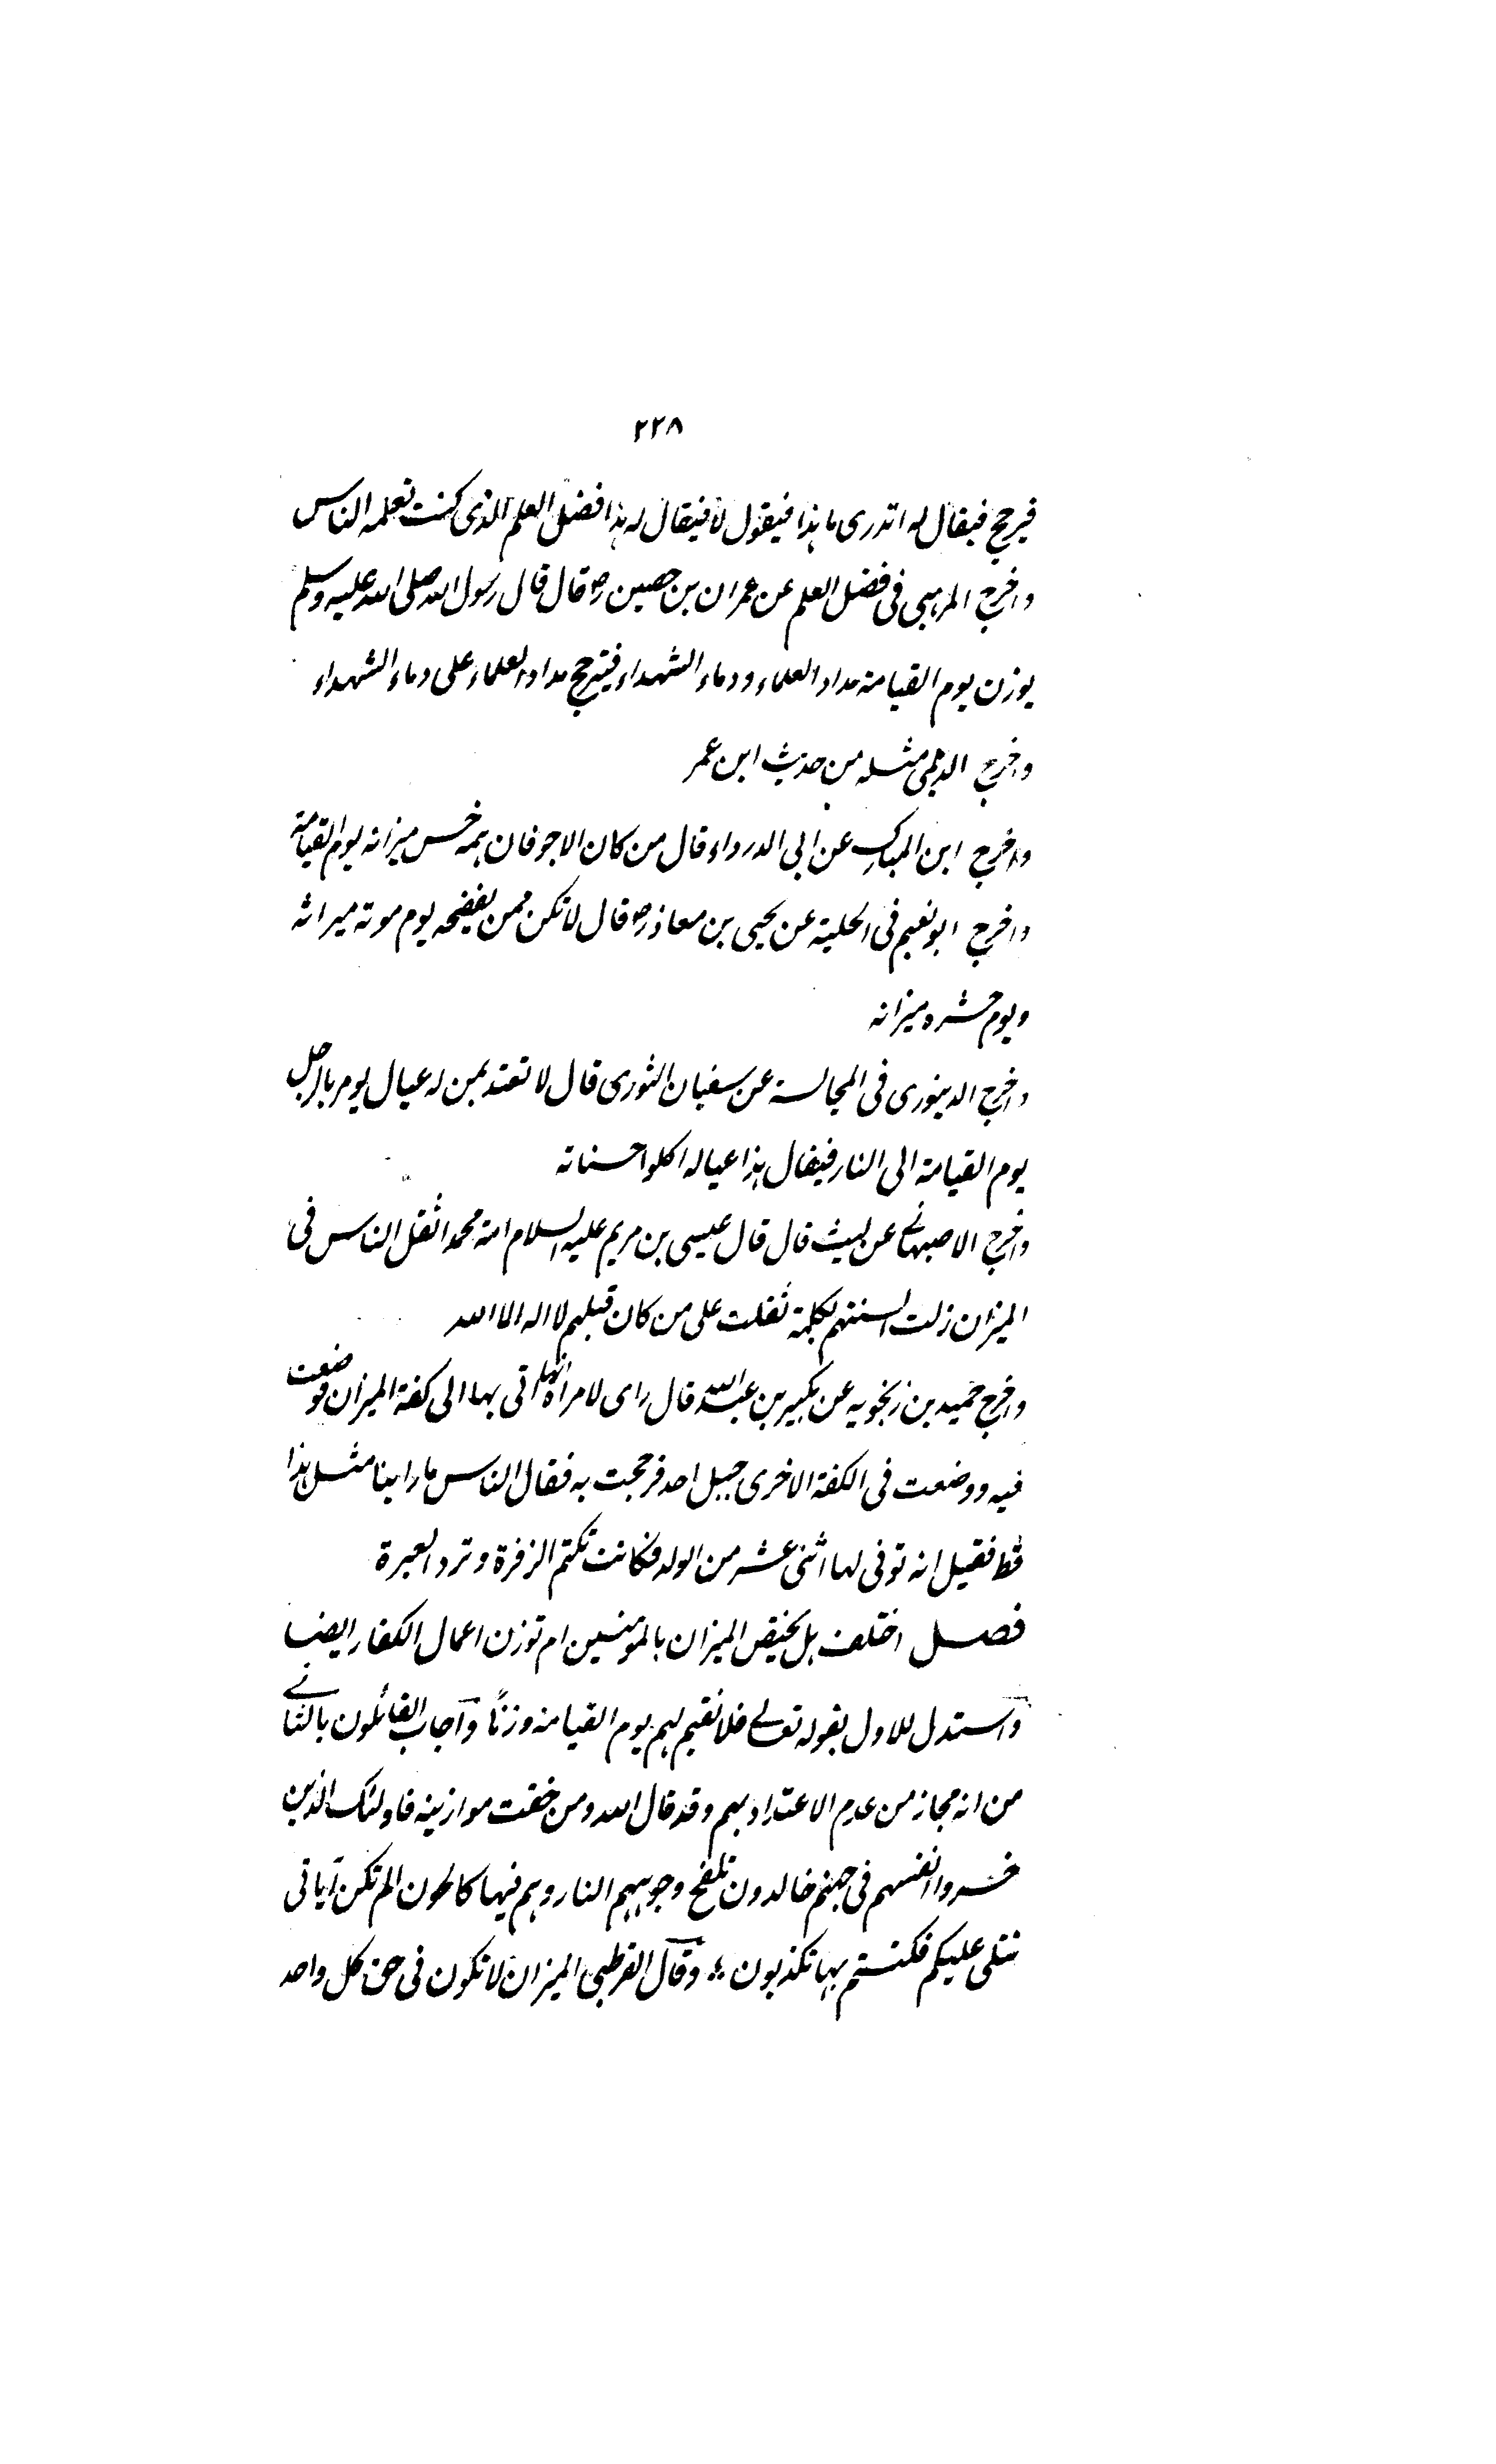 ٢٢٨
فيرجح فيقال له اتدرى ما هذا فيقول لا فيقال له هذا فضل العلم الذى كنت تعلمه الناس
واخرج المرهبى فى فضل العلم عن عمران بن حصين رض قال قال رسول الله صلى الله عليه وسلم
يوزن يوم القيامة مداد العلماء ودماء الشهداء فيترجح مداد العلماء على دماء الشهداء
واخرج الديلمى مثله من حديث ابن عمر
واخرج ابن المبارك عن ابى الدرداء قال من كان الاجوفان همه خس ميزانه يوم القيامة
واخرج ابو نعيم فى الحلية عن يحيى بن معاذ رض قال لا تكن ممن يفضحه يوم موته ميراثه
ويوم حشره ميزانه
واخرج الدينورى فى المجالسة عن سفيان الثورى قال لا تعتد بمن له عيال يومر بالرجل
يوم القيامة الى النار فيقال هذا عياله اكلوا حسناته
واخرج الاصبهانى عن ليث قال قال عيسى بن مريم عليه السلام امة محمد اثقل الناس فى
الميزان زلت السنتهم بكلمة ثقلت على من كان قبلهم لا اله الا الله
واخرج حميد بن زنجويه عن بكير بن عبد الله قال راى لامراة انها اتى بها الى كفة الميزان فوضعت
فيه ووضعت فى الكفة الاخرى جبل احد فرجحت به فقال الناس ما راينا مثل هذا
قط فقيل انه توفى لها اثنى عشر من الولد فكانت تكتم الزفرة وترد العبرة
فصل اختلف هل يختص الميزان بالمؤمنين ام توزن اعمال الكفار ايضا
واستدل للاول بقوله تعالى فلا نقيم لهم يوم القيامة وزنًا وآجاب القائلون بالثانى
من انه مجاز من عدم الاعتداد بهم وقد قال الله ومن خفت موازينه فاولئك الذين
خسروا انفسهم فى جهنم خالدون تلفح وجوههم النار وهم فيها كالحون الم تكن آياتى
تتلى عليكم فكنتم بها تكذبون ؛ وقال القرطبى الميزان لا تكون فى حق كل واحد